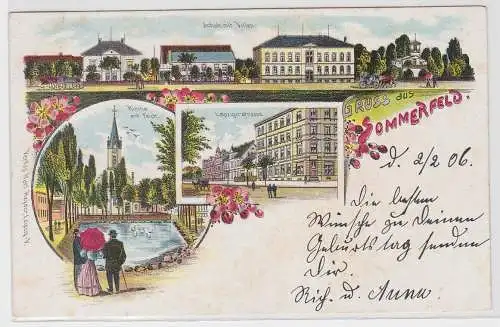 Schule mit Villen
GRUSS aus
SOMMERFELD.
Kirche
mit Teich
Leipzigerstrasse
d. 2/2 06.
Die besten
Wünsche zu Deinem
Geburtstag senden
Dir.
Rich. u. Anna.
Verlag